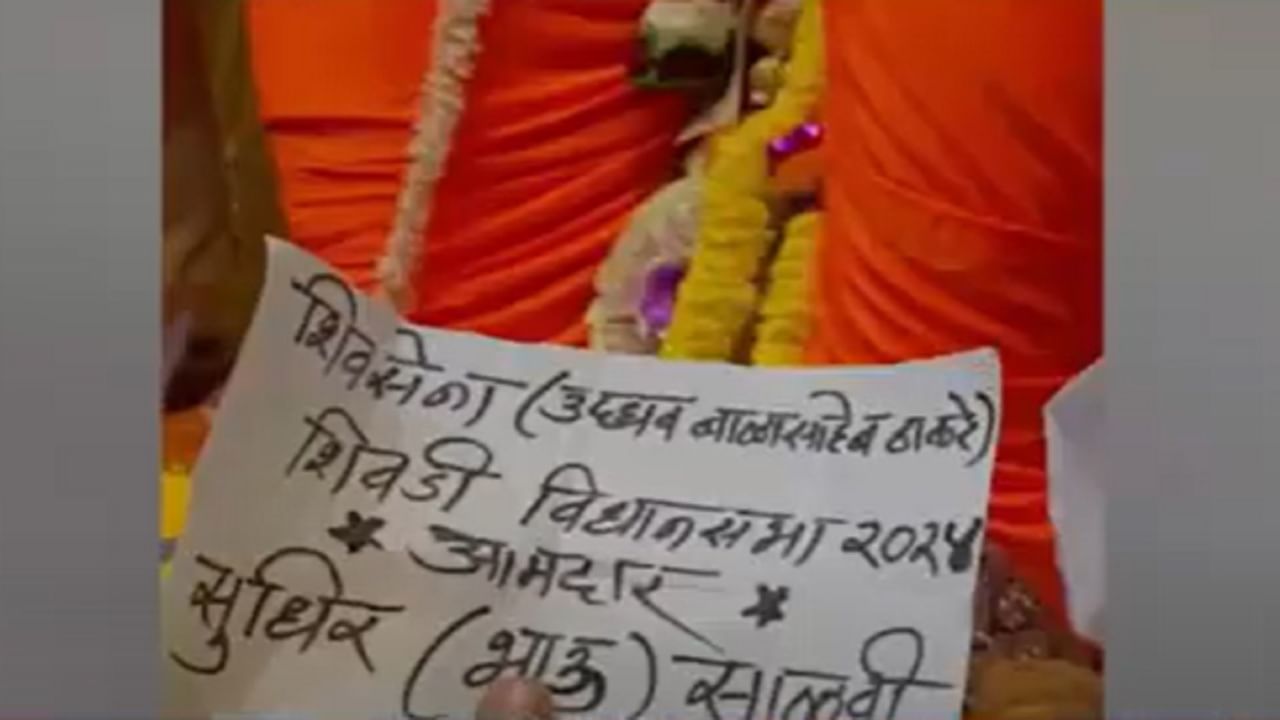 शिवसेना (उद्धव बाळासाहेब ठाकरे)
शिवडी विधानसभा २०२४
* आमदार *
सुधिर (भाऊ) साळवी